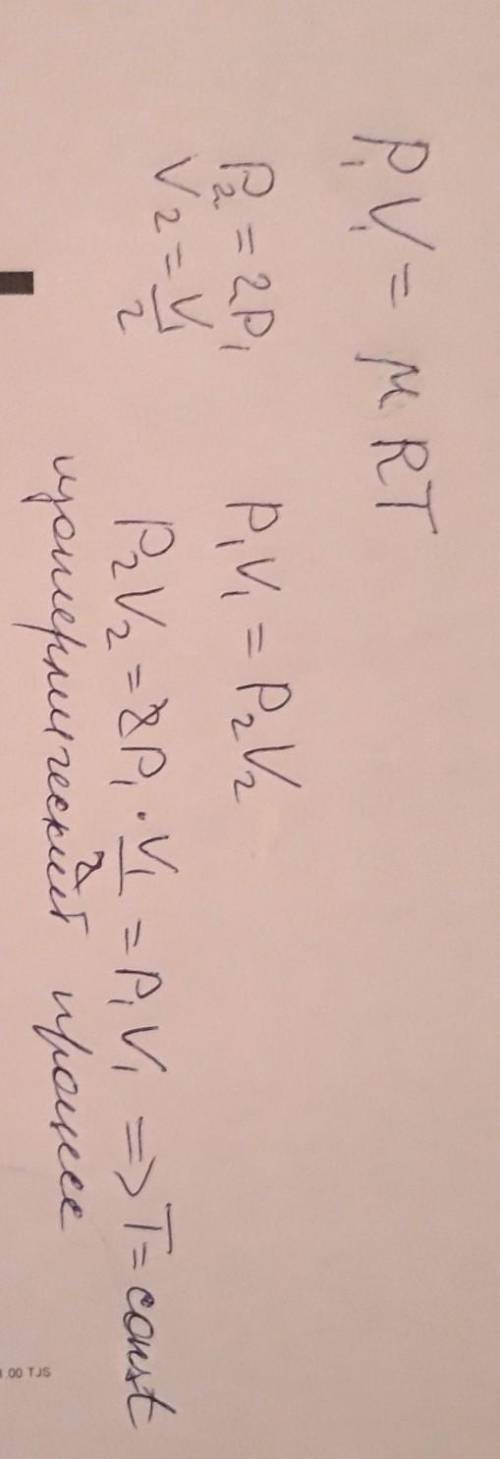 P₁V₁ = μRT
P₂ = 2P₁
V₂ = V₁/2
P₁V₁ = P₂V₂
P₂V₂ = 2P₁ · V₁/2 = P₁V₁ => T = const
изотермический процесс
.00 TJS